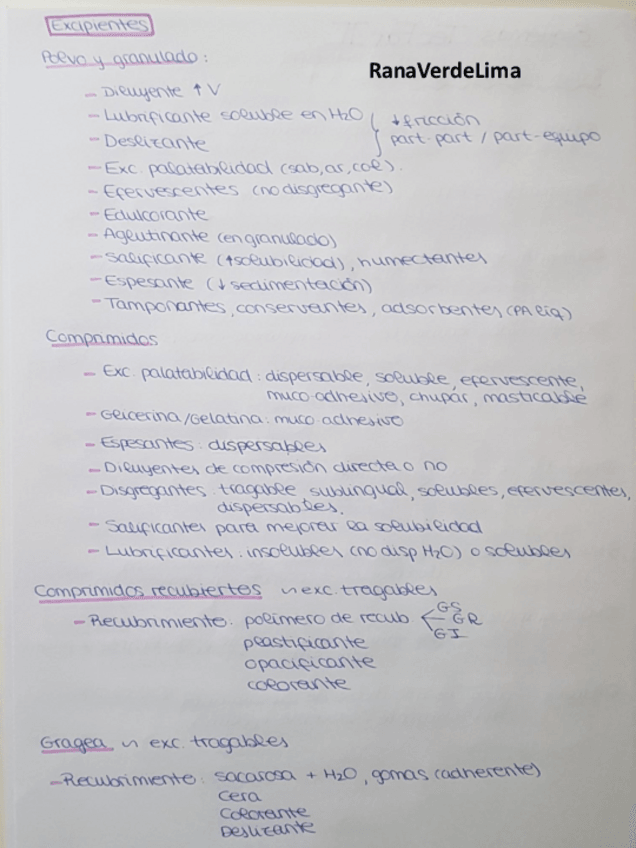 Excipientes
Polvo y granulado:
RanaVerdeLima
- Diluyente ↑ V
- Lubrificante soluble en H2O
- Deslizante
} ↓ fricción
part-part / part-equipo
- Exc. palatabilidad (sab, ar, col).
- Efervescentes (no disgregante)
- Edulcorante
- Aglutinante (en granulado)
- Salificante (↑ solubilidad), humectantes
- Espesante (↓ sedimentación)
- Tamponantes, conservantes, adsorbentes (PA líq)
Comprimidos
- Exc. palatabilidad: dispersable, soluble, efervescente,
muco adhesivo, chupar, masticable
- Glicerina/Gelatina: muco adhesivo
- Espesantes: dispersables
- Diluyentes de compresión directa o no
- Disgregantes: tragable, sublingual, solubles, efervescentes,
dispersables.
- Salificantes para mejorar la solubilidad
- Lubrificantes: insolubles (no disp H2O) o solubles
Comprimidos recubiertes ~ exc. tragables
- Recubrimiento: polímero de recub < GS
GR
GI
plastificante
opacificante
colorante
Gragea ~ exc. tragables
- Recubrimiento: sacarosa + H2O, gomas (adherente)
cera
Colorante
Deslizante